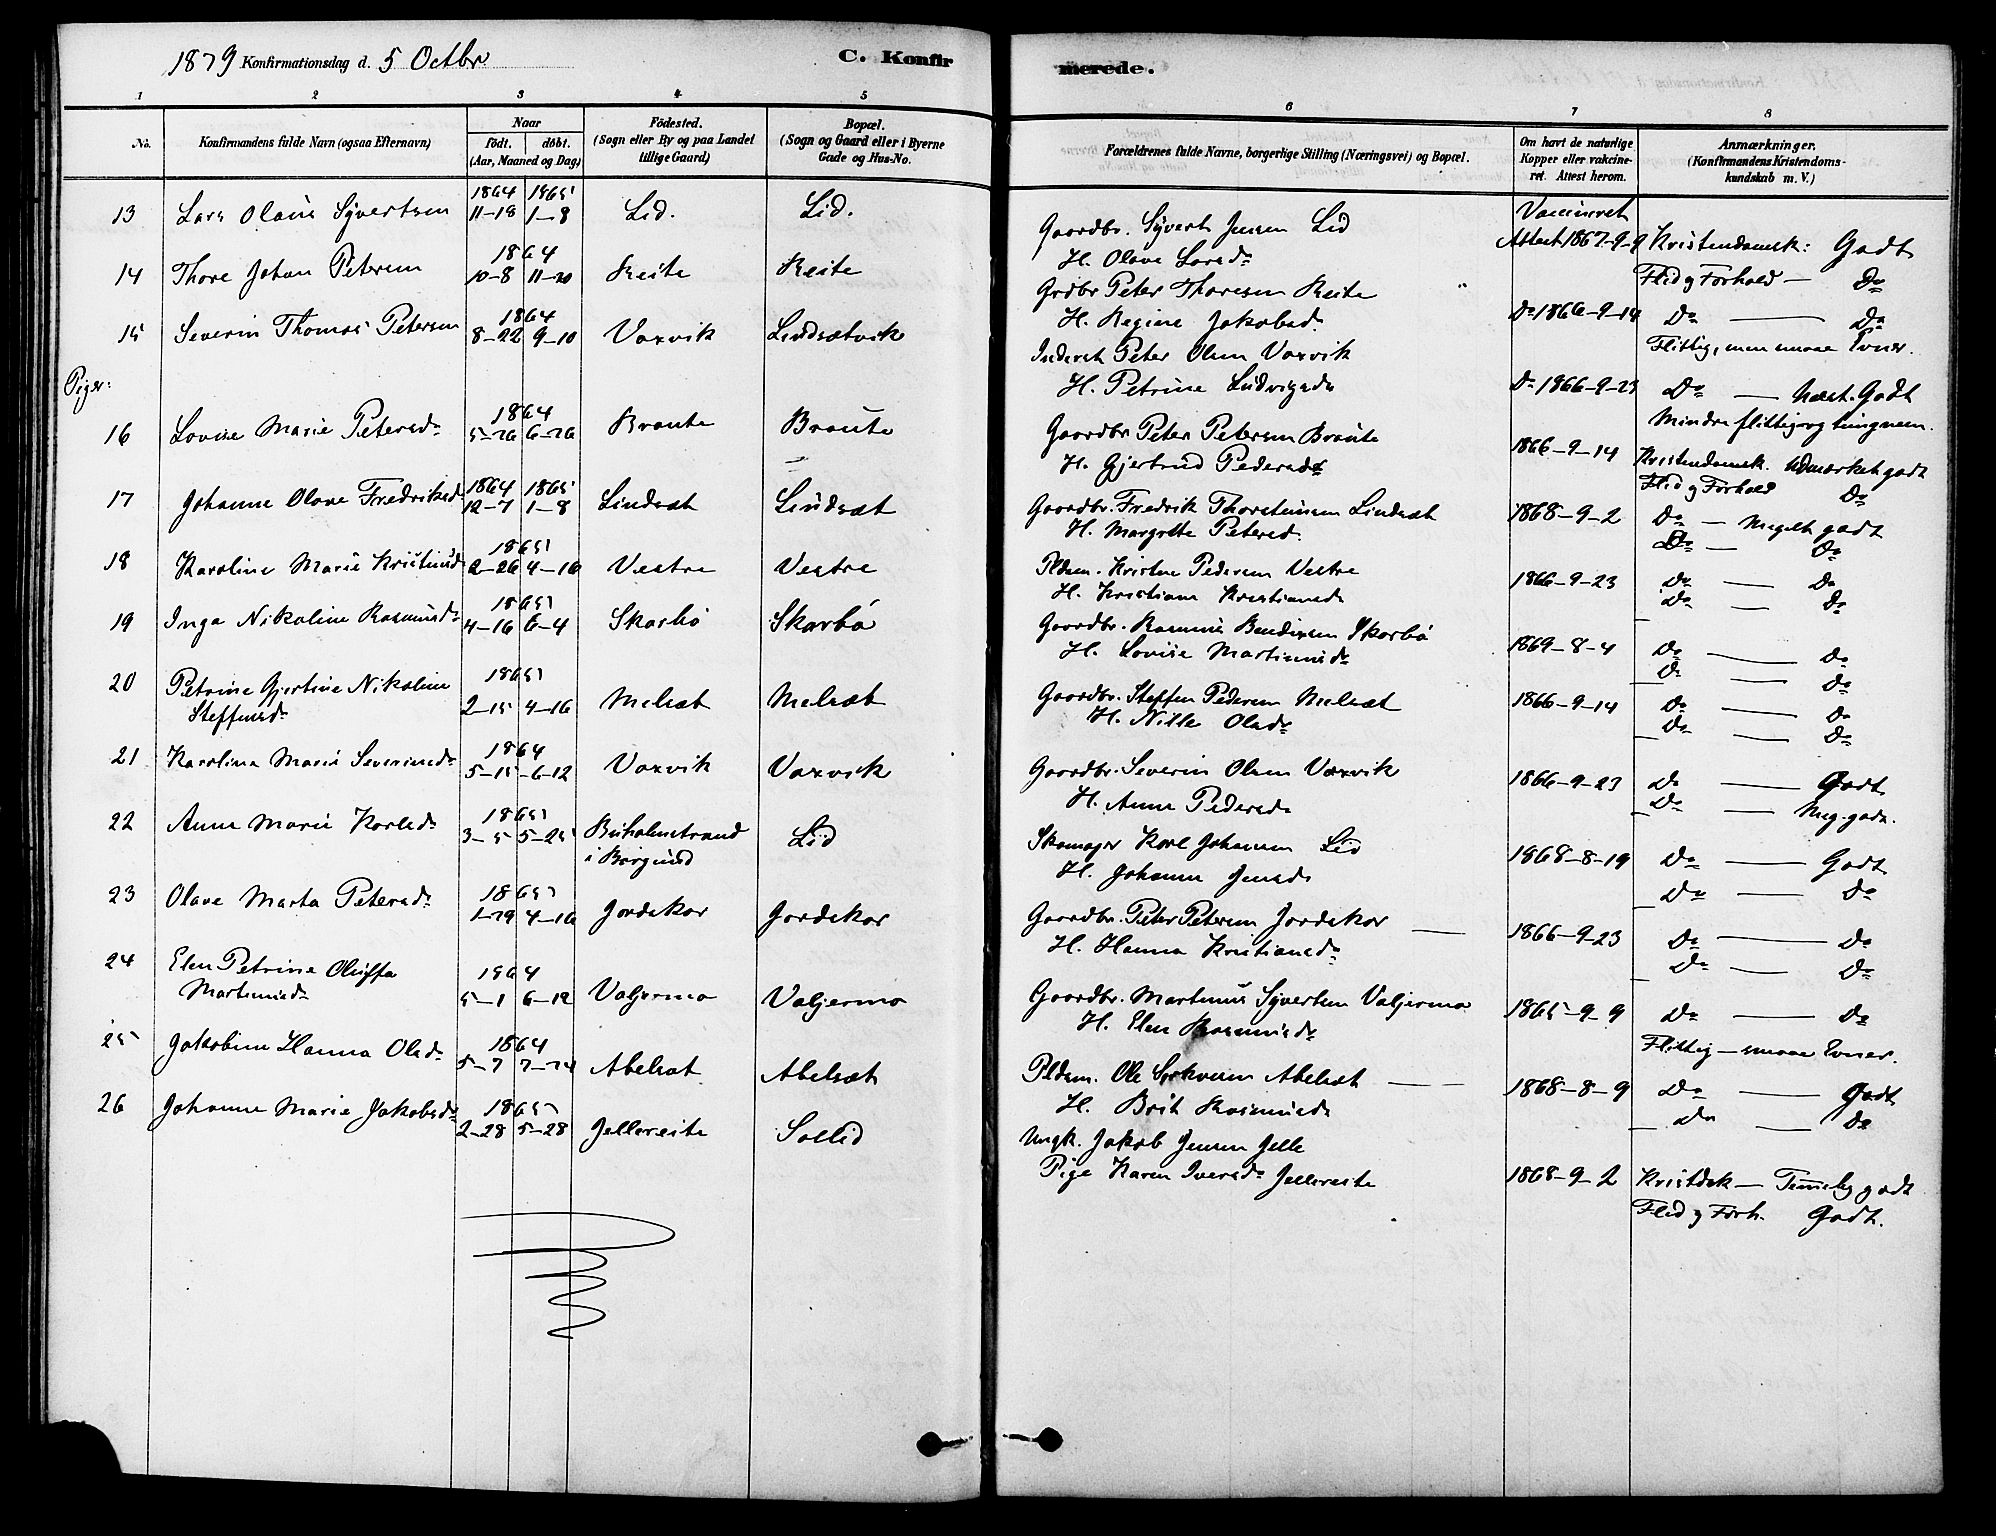 1879 Konfirmationsdag d. 5 Octbr
C. Konfir
merede.
1 2 3 4 5
6 7 8
No. Konfirmandens fulde Navn (ogsaa Efternavn)
Naar
födt. döbt.
(Aar, Maaned og Dag)
Födested.
(Sogn eller By og paa Landet
tillige Gaard)
Bopæl.
(Sogn og Gaard eller i Byerne
Gade og Hus-No.
Forældrenes fulde Navne, borgerlige Stilling (Næringsvei) og Bopæl.
Om havt de naturlige
Kopper eller vakcine-
ret. Attest herom.
Anmærkninger.
(Konfirmandens Kristendoms-
kundskab m. V.)
1864 1865
13 Lars Olaus Syvertsen 11-18 1-8 Lid. Lid.
1864
14 Thore Johan Petersen 10-8 11-20 Reite Reite
1864
15 Severin Thomas Petersen 8-22 9-10 Vaxvik Lindsætvik
Piger:
1864
16 Lovise Marie Petersd. 5-26 6-26 Braute Braute
1864 1865
17 Johanne Olave Fredriksd. 12-7 1-8 Lindsæt Lindsæt
1865
18 Karoline Marie Kristinsd. 2-26 4-16 Vestre Vestre
1865
19 Inga Nikoline Rasmusd. 4-16 6-4 Skarbö Skarbö
1865
20 Petrine Gjertine Nikoline
Steffensd. 2-15 4-16 Melsæt Melsæt
1864
21 Karoline Marie Severinsd. 5-15 6-12 Vaxvik Vaxvik
1865
22 Anne Marie Karlsd. 3-5 5-25 Buholmstrand Lid
i Borgund
1865
23 Olave Marta Petersd. 1-29 4-16 Jordskar Jordskar
1864
24 Elen Petrine Oluffa
Martinusd. 5-1 6-12 Valjermo Valjermo
1864
25 Jakobine Hanna Olsd. 5-7 7-24 Abelsæt Abelsæt
1865
26 Johanne Marie Jakobsd. 2-28 5-28 Jellereite Sollid
Gaardbr. Syvert Jensen Lid
H. Olave Larsd.
Grdbr Peter Thoresen Reite
H. Regine Jakobsd.
Inderst Peter Olsen Vaxvik
H. Petrine Ludvigsd.
Gaardbr Peter Petersen Braute
H. Gjertrud Pedersd.
Gaardbr. Fredrik Thorsteinsen Lindsæt
H. Margrete Petersd.
Pldsm. Kristen Pedersen Vestre
H. Kristiane Kristiansd.
Gaardbr. Rasmus Bendixsen Skarbö
H. Lovise Martinusd.
Gaardbr. Steffen Pedersen Melsæt
H. Nille Olsd.
Gaardbr. Severin Olsen Vaxvik
H. Anne Pedersd.
Skomager Karl Johansen Lid
H. Johanne Jensd.
Gaardbr. Peter Petersen Jordskar
H. Hanna Kristiansd.
Gaardbr. Martinus Syvertsen Valjermo
H. Elen Rasmusd.
Pldsm. Ole Abelsæt
H. Brit Rasmusd.
Ungk. Jakob Jensen Jelle
Pige Karen Iversd. Jellereite
Vaccineret
Attest 1867-9-9
Do 1866-9-14
Do 1866-9-23
1866-9-14
1868-9-2
1866-9-23
1869-8-4
1866-9-14
1866-9-23
1868-8-19
1866-9-23
1865-9-9
1868-8-9
1868-9-2
Kristendomsk: Godt
Flid og Forhold — Do
Do — Do
Flittig, men smaae Evner.
Do — Næst. Godt
Mindre flittig og tungnem.
Kristendomsk. udmærket godt
Flid og Forhold Do
Do — Meget godt
Do — Do
Do — Do
Do — Do
Do — Do
Do — Do
Do — Do
Do — Do
Do — Godt
Do — Meg. godt.
Do — Godt
Do — Do
Do — Do
Do — Do
Do — Do
Flittig — smaae Evner.
Do — Godt
Do — Do
Kristdsk — Temmelig godt
Flid og Forh. Godt.